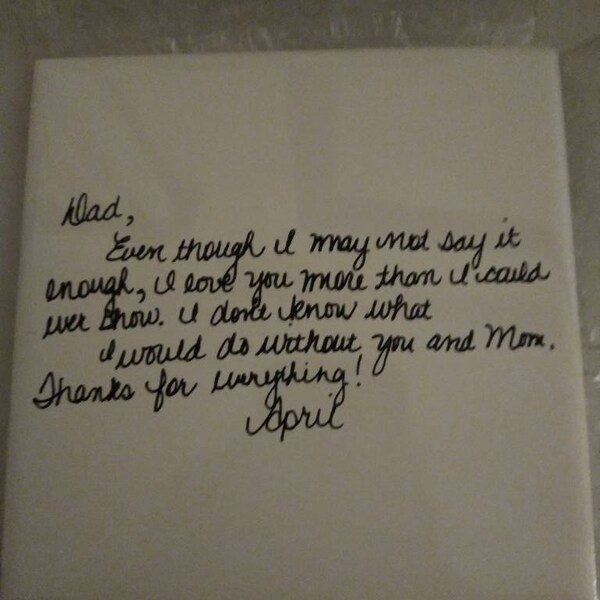 Dad,
Even though I may not say it
enough, I love you more than I could
ever show. I don't know what
I would do without you and Mom.
Thanks for everything!
April